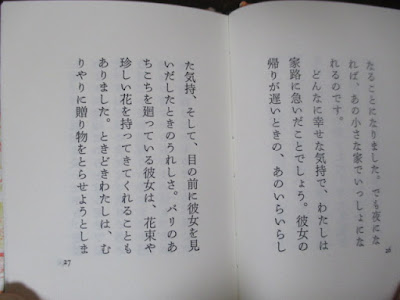 たることになりました。でも夜にな
れば、あの小さな家でいっしょにな
れるのです。
どんなに幸せな気持で、わたしは
家路に急いだことでしょう。彼女の
帰りが遅いときの、あのいらいらし
26
た気持、そして、目の前に彼女を見
いだしたときのうれしさ。パリのあ
ちこちを廻っている彼女は、花束や
珍しい花を持ってきてくれることも
ありました。ときどきわたしは、む
りやりに贈り物をとらせようとしま
27